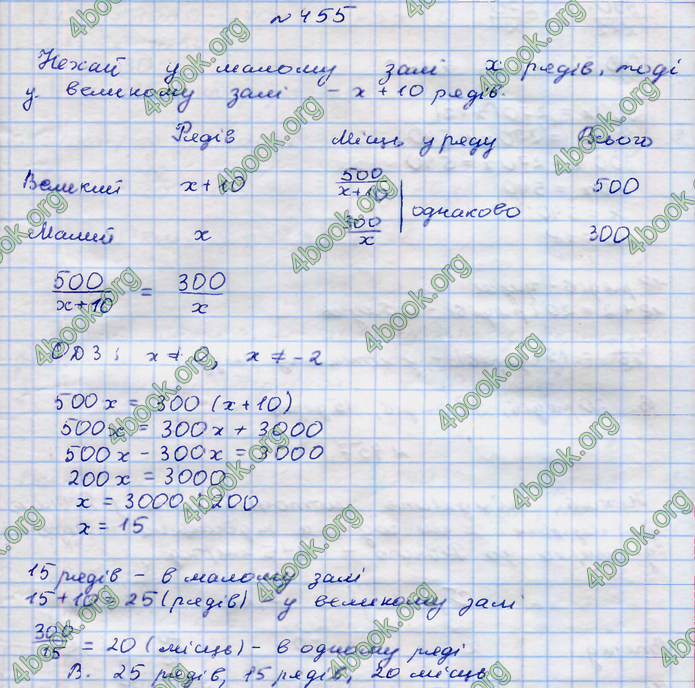 № 455
Нехай у малому залі х рядів, тоді
у великому залі – х + 10 рядів.
Рядів Місць у ряду Всього
Великий х + 10 500/(х+10) 500
однаково
Малий х 300/х 300
500/(х+10) = 300/х
ОДЗ: х ≠ 0, х ≠ -2
500х = 300 (х+10)
500х = 300х + 3000
500х - 300х = 3000
200х = 3000
х = 3000 : 200
х = 15
15 рядів – в малому залі
15 + 10 = 25 (рядів) – у великому залі
300/15 = 20 (місць) – в одному ряді
В. 25 рядів, 15 рядів, 20 місць
4book.org